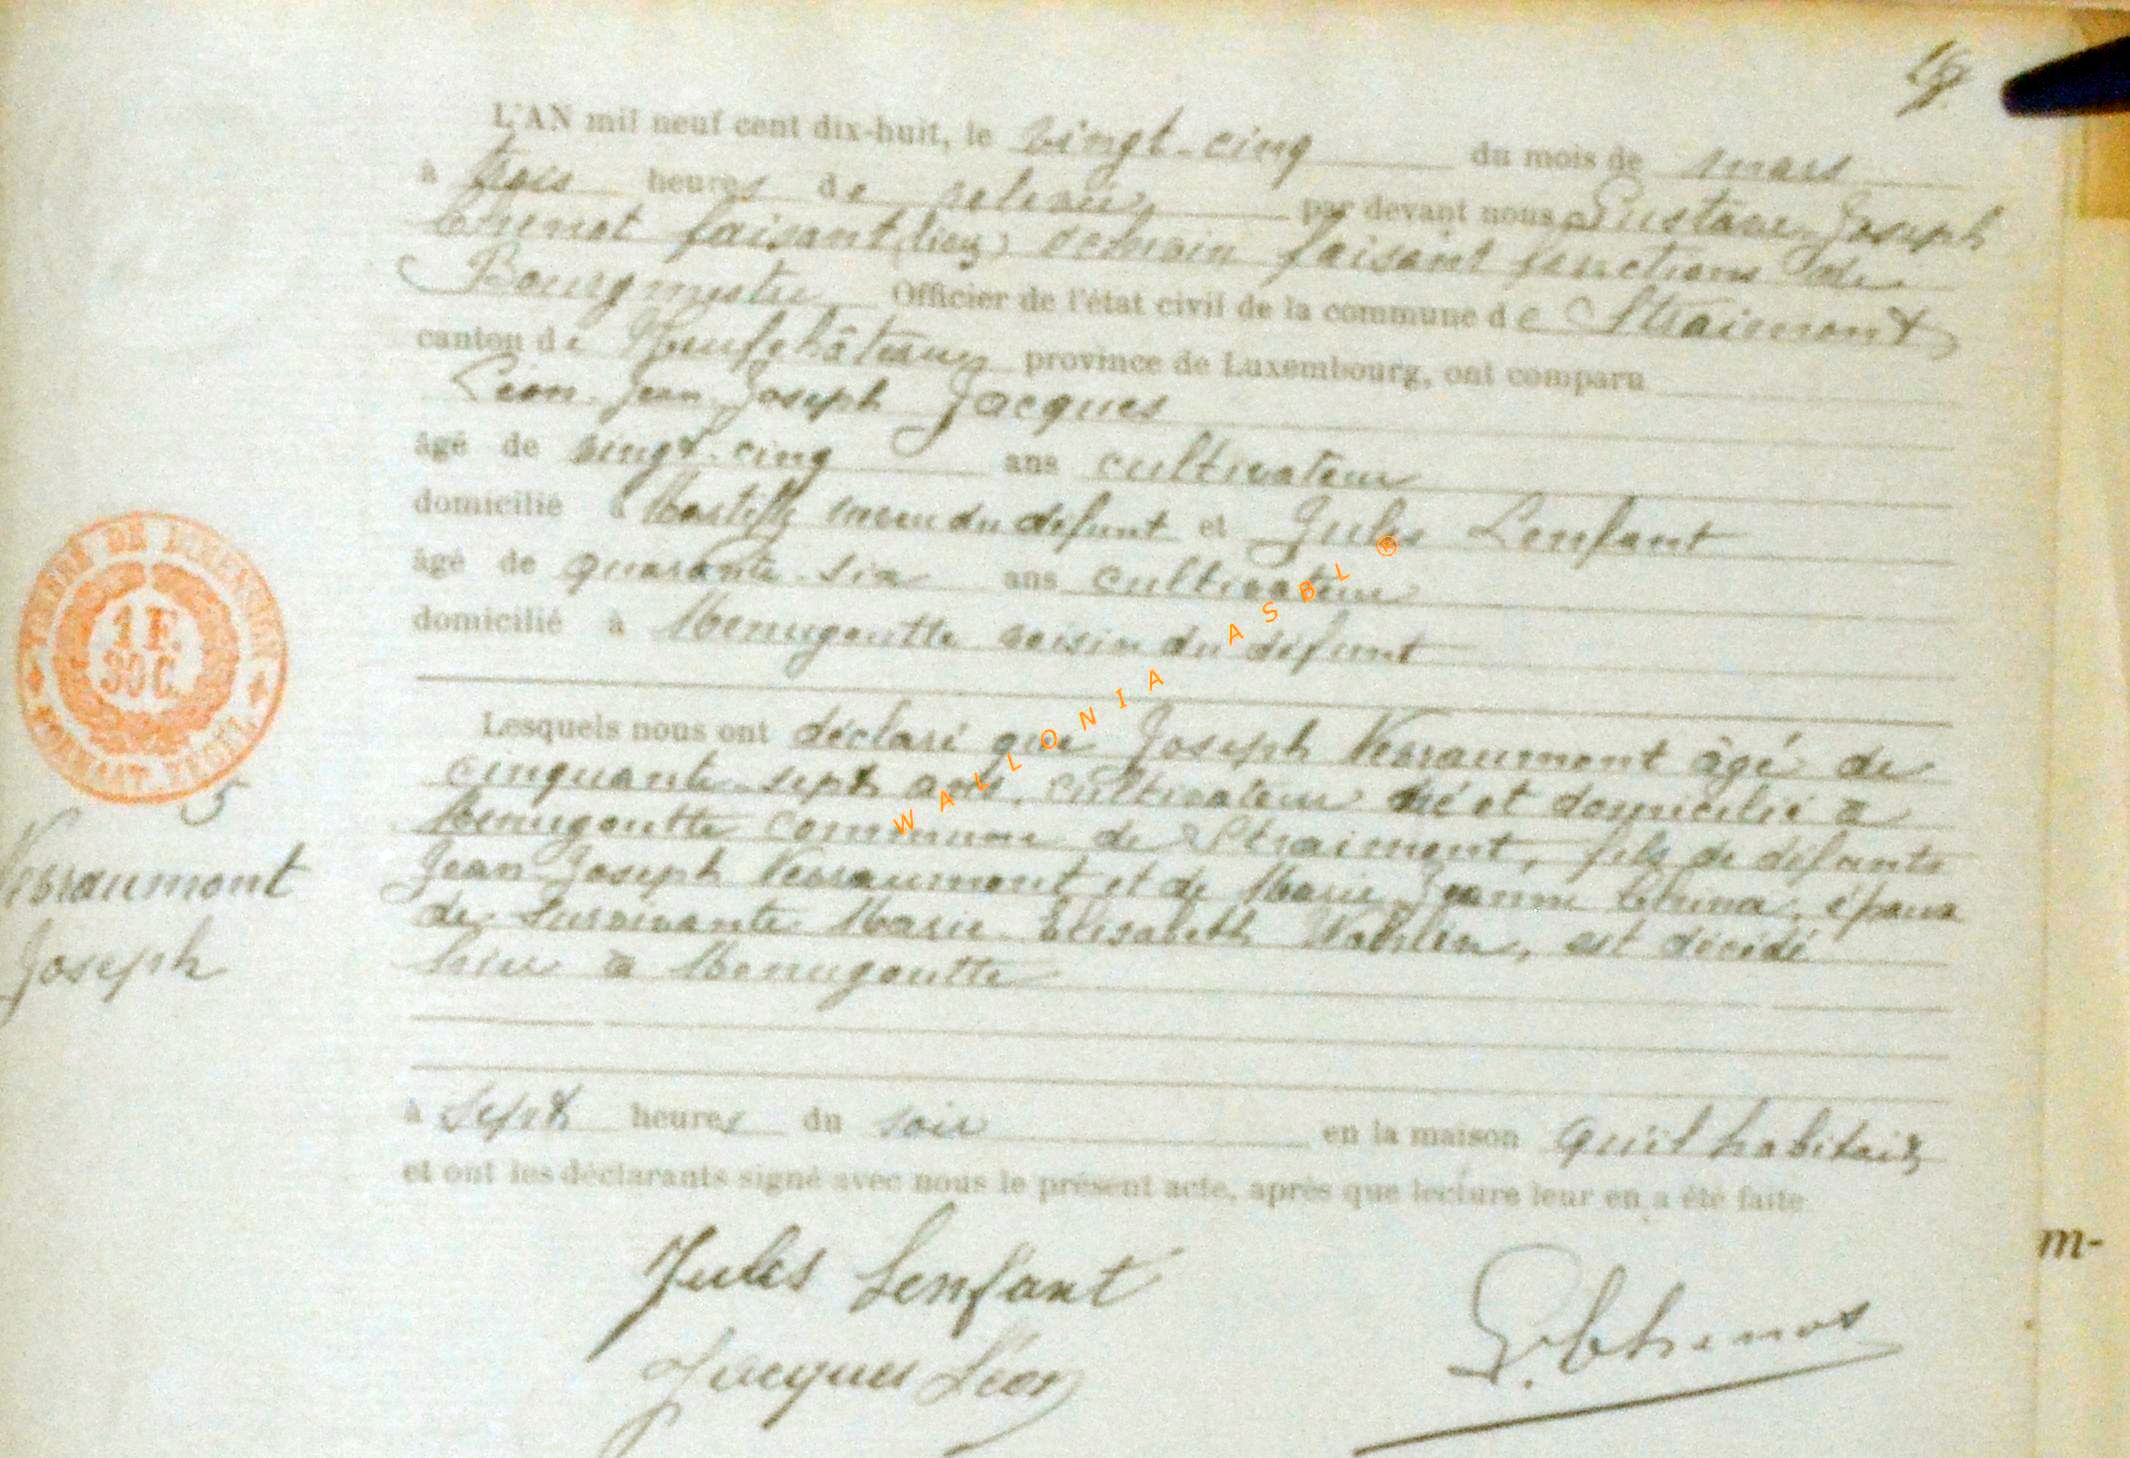 L'AN mil neuf cent dix-huit, le vingt-cinq du mois de mars
à trois heures de relevée par devant nous Gustave Joseph
Chenot faisant échevin faisant fonctions de
Bourgmestre Officier de l'état civil de la commune de Straimont
canton de Neufchâteau province de Luxembourg, ont comparu
Léon Jean Joseph Jacques
âgé de vingt-cinq ans cultivateur
domicilié à neveu du défunt et Jules Lenfant
âgé de quarante-six ans cultivateur
domicilié à Menugoutte voisin du défunt
TIMBRE DE DIMENSION
1 F.
30 C.
Lesquels nous ont déclaré que Joseph Vesraumont âgé de
cinquante-sept ans, cultivateur né et domicilié à
Menugoutte commune de Straimont, fils de défunts
Jean Joseph Vesraumont et de Marie Jeanne China, époux
de survivante Marie Elisabeth, est décédé
hier à Menugoutte
5
Vesraumont
Joseph
à sept heures du soir en la maison qu'il habitait
et ont les déclarants signé avec nous le présent acte, après que lecture leur en a été faite
Jules Lenfant
Jacques Léon
G. Chenot
m-
WALLONIA ASBL ®